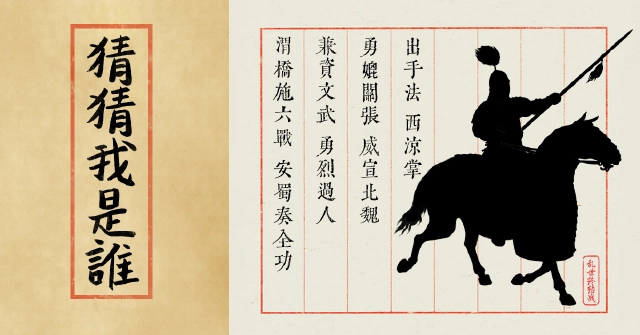 猜猜我是誰
出手法 西涼掌
勇媲關張 威宣北魏
兼資文武 勇烈過人
渭橋施六戰 安蜀奏全功